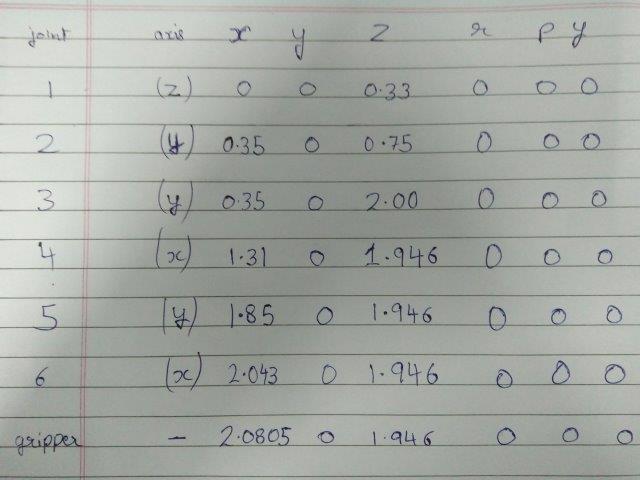 joint axis x y z r p y
1 (z) 0 0 0.33 0 0 0
2 (y) 0.35 0 0.75 0 0 0
3 (y) 0.35 0 2.00 0 0 0
4 (x) 1.31 0 1.946 0 0 0
5 (y) 1.85 0 1.946 0 0 0
6 (x) 2.043 0 1.946 0 0 0
gripper - 2.0805 0 1.946 0 0 0